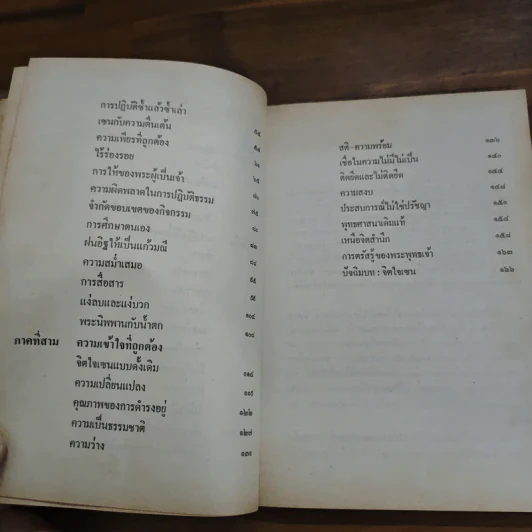 การปฏิบัติซ้ำแล้วซ้ำเล่า
เซนกับความตื่นเต้น
ความเพียรที่ถูกต้อง
ไร้ร่องรอย
การให้ของพระผู้เป็นเจ้า
ความผิดพลาดในการปฏิบัติธรรม
จำกัดขอบเขตของกิจกรรม
การศึกษาตนเอง
ฝนอิฐให้เป็นแก้วมณี
ความสม่ำเสมอ
การสื่อสาร
แง่ลบและแง่บวก
พระนิพพานกับน้ำตก ๑๐๔
ภาคที่สาม ความเข้าใจที่ถูกต้อง
จิตใจเซนแบบดั้งเดิม
ความเปลี่ยนแปลง
คุณภาพของการดำรงอยู่ ๑๒๒
ความเป็นธรรมชาติ ๑๒๗
ความว่าง ๑๓๑
สติ-ความพร้อม ๑๓๖
เชื่อในความไม่มีไม่เป็น ๑๔๐
ติดยึดและไม่ติดยึด
ความสงบ
ประสบการณ์ไม่ใช่ปรัชญา ๑๕๑
พุทธศาสนาเดิมแท้ ๑๕๔
เหนือจิตสำนึก ๑๕๘
การตรัสรู้ของพระพุทธเจ้า ๑๖๓
ปัจฉิมบท : จิตใจเซน ๑๖๖